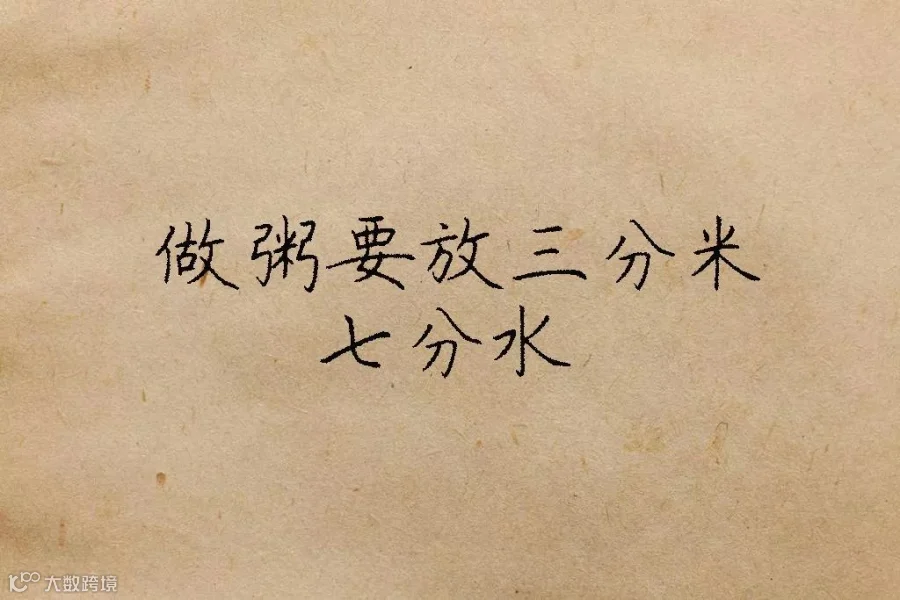 做粥要放三分米
七分水
大数跨境